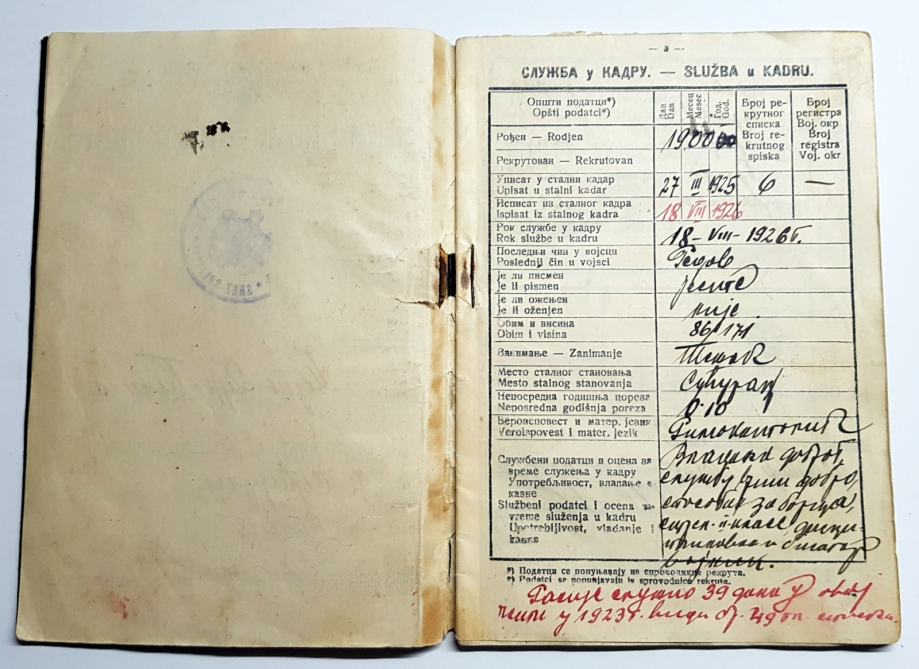 — 3 —
СЛУЖБА у КАДРУ. — SLUŽBA u KADRU.
Општи податци*)
Opšti podatci*)
Дан
Dan
Месец
Mesec
Год.
God.
Број ре-
крутног
списка
Broj re-
krutnog
spiska
Број
регистра
Вој. окр
Broj
registra
Voj. okr
Рођен — Rodjen
1900
Рекрутован — Rekrutovan
Уписат у стални кадар
Upisat u stalni kadar
27 III 1925 6 —
Исписат из сталног кадра
Ispisat iz stalnog kadra
18 VIII 1926
Рок службе у кадру
Rok službe u kadru
18 - VIII - 1926 г.
Последњи чин у војсци
Poslednji čin u vojsci
Редов
Је ли писмен
Je li pismen
јесте
Је ли ожењен
Je li oženjen
није
Обим и висина
Obim i visina
86/171
Занимање — Zanimanje
Тежак
Место сталног становања
Mesto stalnog stanovanja
Непосредна годишња пореза
Neposredna godišnja poreza
0·10
Вероисповест и матер. језик
Veroispovest i mater. jezik
Службени податци и оцена за
време служења у кадру
Употребљивост, владање и
казне
Službeni podatci i ocena za
vreme služenja u kadru
Upotrebljivost, vladanje i
kazne
Владања доброг,
службу врши добро,
*) Податци се попуњавају из спроводнице рекрута.
*) Podatci se popunjavaju iz sprovodnice rekruta.
39 дана у овој
у 1923 г.